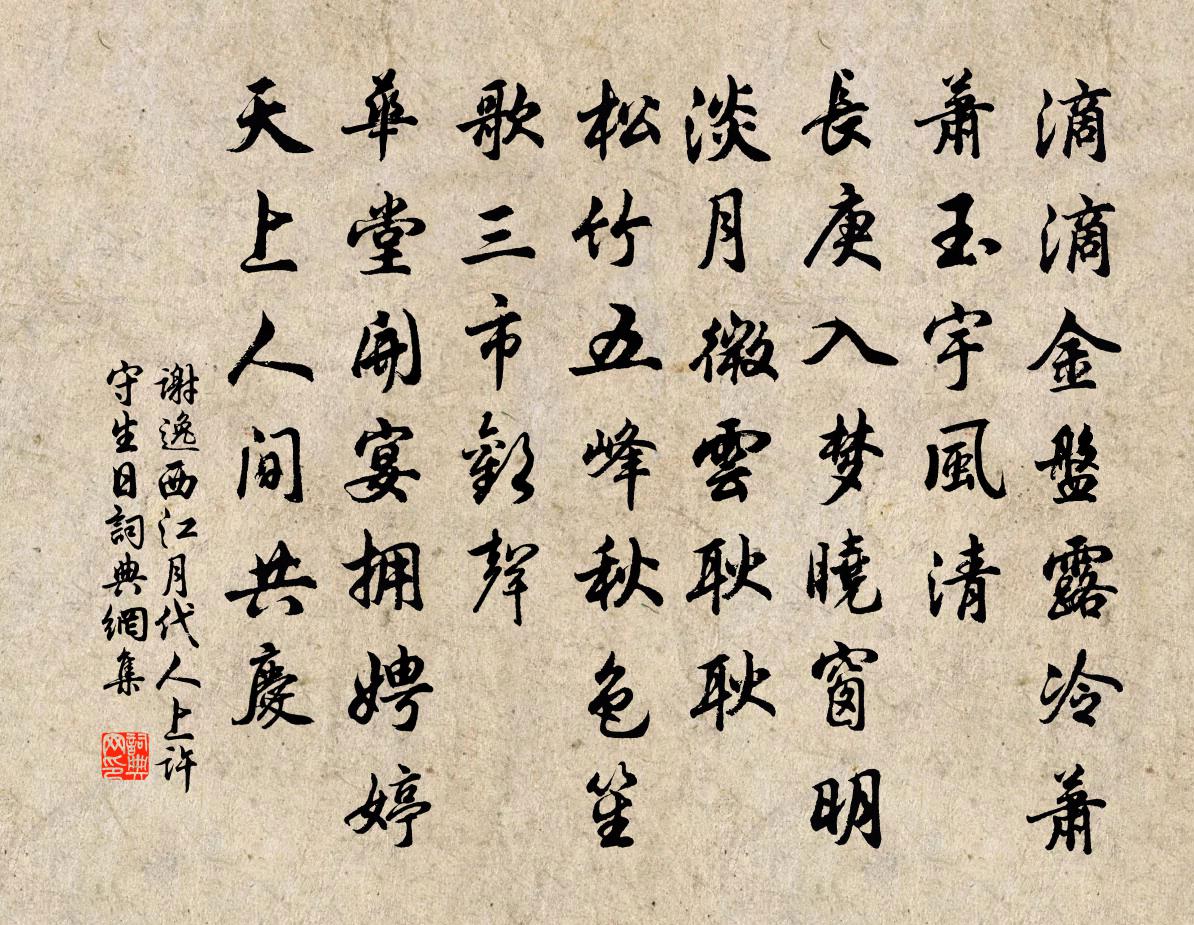 滴滴金盤露冷蕭
蕭玉宇風清
長庚入梦曉窗明
淡月微雲耿耿
松竹五峰秋色笙
歌三市歡聲
華堂開宴擁娉婷
天上人间共慶
謝逸西江月代人上許
守生日詞典網集
詞典网印